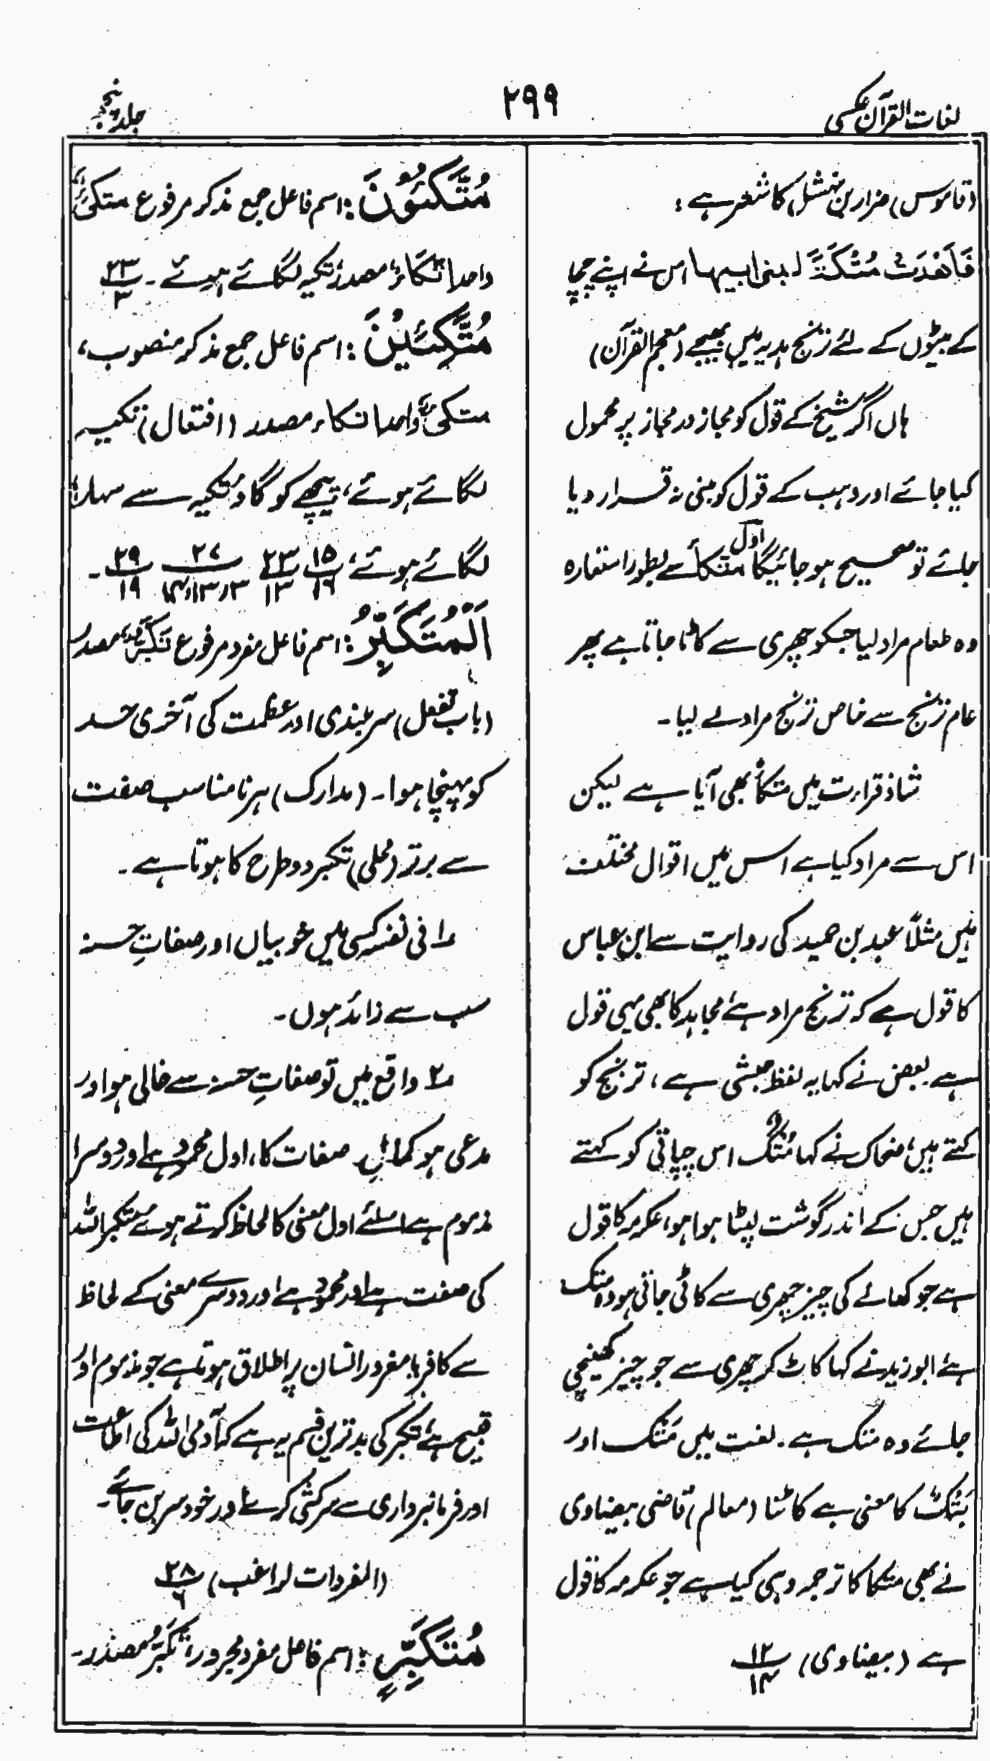 لغات القرآن عکسی
۲۹۹
جلد پنجم
(قاموس) ضرار بن نہشل کا شعر ہے :
فَاَهْدَتْ مُتْكَةً لبنی ابیہا اس نے اپنے چچا
کے بیٹوں کے لئے ترنج ہدیہ میں بھیجے (معجم القرآن)
ہاں اگر شیخ کے قول کو مجاز در مجاز پر محمول
کیا جائے اور وہب کے قول کو مبنی نہ قرار دیا
جائے تو صحیح ہو جائیگا اول متکأ سے بطور استعارہ
وہ طعام مراد لیا جسکو چھری سے کاٹا جاتا ہے پھر
عام ترنج سے خاص ترنج مراد لے لیا۔
شاذ قراءت میں متکأ بھی آیا ہے لیکن
اس سے مراد کیا ہے اس میں اقوال مختلف
ہیں مثلاً عبد بن حمید کی روایت سے ابن عباس
کا قول ہے کہ ترنج مراد ہے مجاہد کا بھی یہی قول
ہے بعض نے کہا یہ لفظ حبشی ہے، ترنج کو
کہتے ہیں، ضحاک نے کہا مُتْک اس چپاتی کو کہتے
ہیں جس کے اندر گوشت لپٹا ہوا ہو، عکرمہ کا قول
ہے جو کھانے کی چیز چھری سے کاٹی جاتی ہو وہ متک
ہے ابو زید نے کہا کاٹ کر چھری سے جو چیز کھینچی
جائے وہ متک ہے۔ لغت میں مَتْک اور
بَتْک کا معنی ہے کاٹنا (معالم) قاضی بیضاوی
نے بھی متکا کا ترجمہ وہی کیا ہے جو عکرمہ کا قول
ہے (بیضاوی) ۱۲/۱۴
مُتَّكِئُوْنَ : اسم فاعل جمع مذکر مرفوع متکئ
واحد اتکاء مصدر تکیہ لگائے ہوئے۔ ۲۳/۳
مُتَّكِئِيْنَ : اسم فاعل جمع مذکر منصوب،
متکئ واحد اتکاء مصدر (افتعال) تکیہ
لگائے ہوئے، پیچھے کو گاؤ تکیہ سے سہارا
لگائے ہوئے، ۱۵/۱۶ ۲۳/۱۳ ۲۷/۱۴،۱۳،۳ ۲۹/۱۹۔
اَلْمُتَكَبِّرُ : اسم فاعل مفرد مرفوع تَکَبُّرٌ مصدر
(باب تفعل) سربلندی اور عظمت کی آخری حد
کو پہنچا ہوا۔ (مدارک) ہر نامناسب صفت
سے برتر (محلی) تکبر دو طرح کا ہوتا ہے۔
۱؎ فی نفسہ کسی میں خوبیاں اور صفاتِ حسنہ
سب سے زائد ہوں۔
۲؎ واقع میں تو صفاتِ حسنہ سے خالی ہو اور
مدعی ہو کمالِ صفات کا، اول محمود ہے اور دوسرا
مذموم ہے اسلئے اول معنی کا لحاظ کرتے ہوئے متکبر اللہ
کی صفت ہے اور محمود ہے اور دوسرے معنی کے لحاظ
سے کافر یا مغرور انسان پر اطلاق ہوتا ہے جو مذموم اور
قبیح ہے تکبر کی بدترین قسم یہ ہے کہ آدمی اللہ کی اطاعت
اور فرمانبرداری سے سرکشی کرے اور خود سر بن جائے۔
(المفردات لراغب) ۲۸/۶
مُتَكَبِّرٍ : اسم فاعل مفرد مجرور، تکبُّر مصدر۔